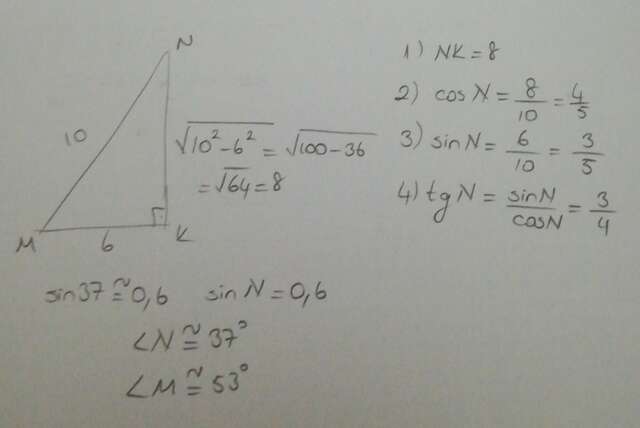 N
10
M
6
K
√10²-6² = √100-36
= √64 = 8
1) NK = 8
2) cos N = 8/10 = 4/5
3) sin N = 6/10 = 3/5
4) tg N = sinN/cosN = 3/4
sin37 ≅ 0,6 sin N = 0,6
∠N ≅ 37°
∠M ≅ 53°